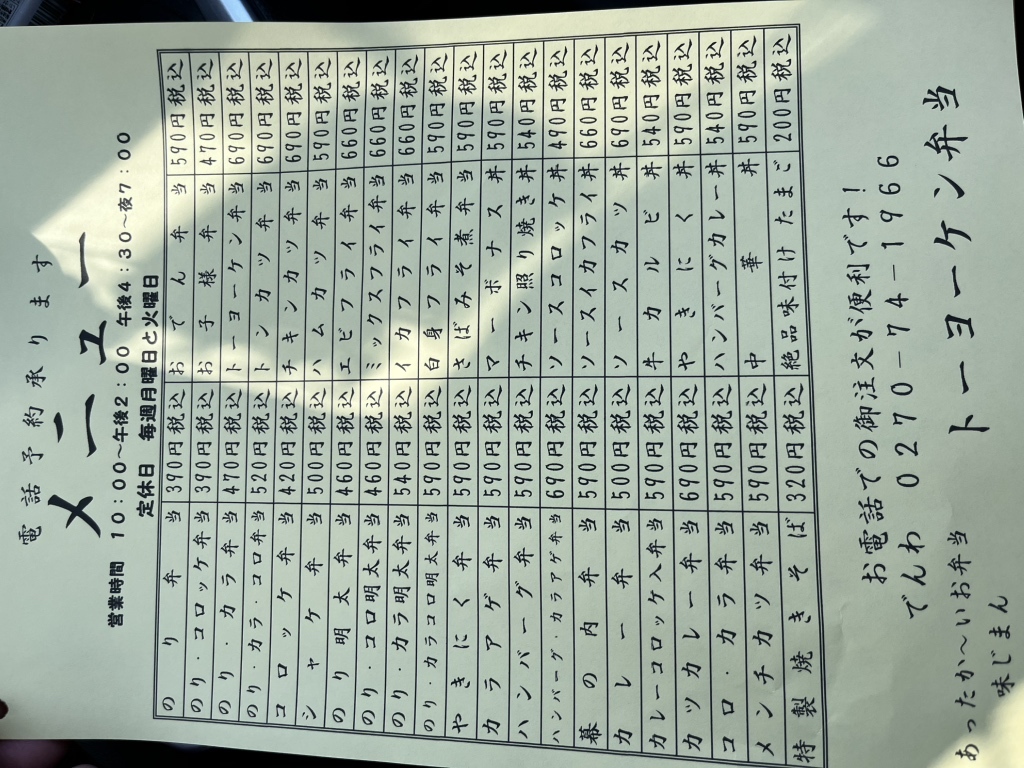 電話予約承ります
メニュー
営業時間 10:00〜午後2:00 午後4:30〜夜7:00
定休日 毎週月曜日と火曜日
のり弁当 390円税込 おでん弁当 590円税込
のり・コロッケ弁当 390円税込 お子様弁当 470円税込
のり・カラ弁当 470円税込 トーヨーケン弁当 690円税込
のり・カラ・コロ弁当 520円税込 トンカツ弁当 690円税込
コロッケ弁当 420円税込 チキンカツ弁当 690円税込
シャケ弁当 500円税込 ハムカツ弁当 590円税込
のり明太弁当 460円税込 エビフライ弁当 660円税込
のり・コロ明太弁当 460円税込 ミックスフライ弁当 660円税込
のり・カラ明太弁当 540円税込 イカフライ弁当 660円税込
のり・カラコロ明太弁当 590円税込 白身フライ弁当 590円税込
やきにく弁当 590円税込 さばみそ煮弁当 590円税込
カラアゲ弁当 590円税込 マーボナス丼 590円税込
ハンバーグ弁当 590円税込 チキン照り焼き丼 540円税込
ハンバーグ・カラアゲ弁当 690円税込 ソースコロッケ丼 490円税込
幕の内弁当 590円税込 ソースイカフライ丼 660円税込
カレー弁当 500円税込 ソースカツ丼 690円税込
カレーコロッケ入弁当 590円税込 牛カルビ丼 540円税込
カツカレー弁当 690円税込 やきにく丼 590円税込
コロ・カラ弁当 590円税込 ハンバーグカレー丼 540円税込
メンチカツ弁当 590円税込 中華丼 590円税込
特製焼きそば 320円税込 絶品味付けたまご 200円税込
お電話での御注文が便利です!
でんわ 0270-74-1966
トーヨーケン弁当
あったか〜いお弁当
味じまん